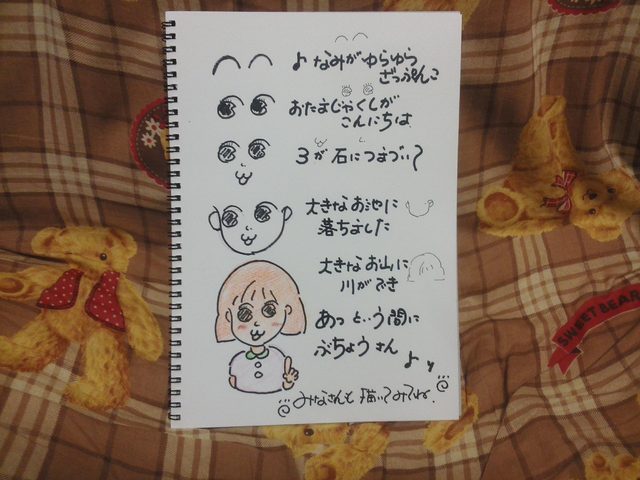 ♪ なみがゆらゆら
ざっぷんこ
おたまじゃくしが
こんにちは
3が石につまづいて
大きなお池に
落ちました
大きなお山に
川ができ
あっという間に
ぶちょうさん
♪
みなさんも描いてみてね。
SWEET BEAR